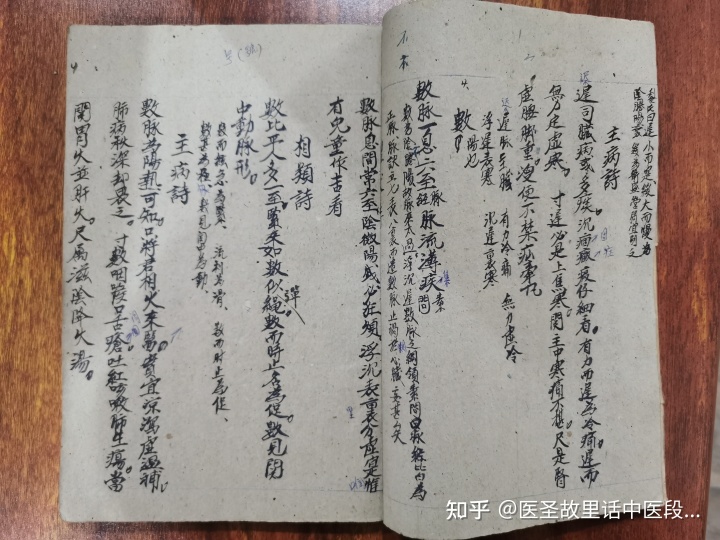 黎氏曰遲小而实緩大而慢為
遲司臟病或多痰沉痼癥瘕仔細看。有力而遲為冷痛遲而
無力定虛寒。 寸遲必是上焦寒関主中寒痛不堪尺是腎
虛腰脚重溲便不禁疝牽丸
遲脈主臟 有力冷痛 無力虛冷
浮遲表寒 沉遲裏寒
數 陽也
數脈一息六至脈經脈流薄疾素問
數脈息間常六至陰微陽盛必狂煩浮沉表裏分虛实惟
有兒童作吉看
相類詩
數比平人多一至緊來如數似繩彈數而時止名為促數見関
中動脈形。
數而弦急為緊、流利為滑、數而時止為促、
主病詩
數脈為陽熱可知只將君相火來醫實宜涼瀉虛溫補。
肺病秋深却畏之。寸數咽喉口舌瘡吐紅咳嗽肺生瘍當
関胃火並肝火。尺屬滋陰降火湯。
知乎 @医圣故里话中医段...